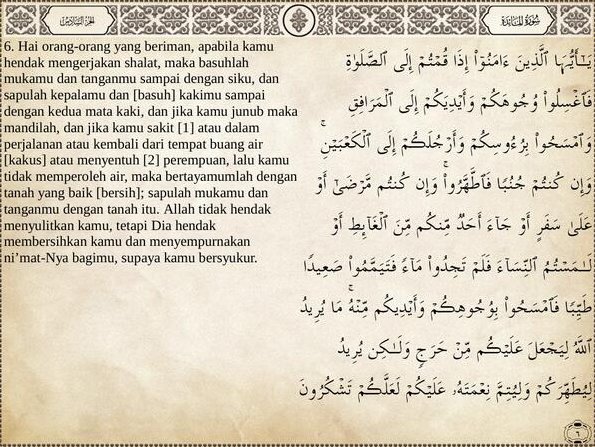 الجزء السادس
سورة المائدة
6. Hai orang-orang yang beriman, apabila kamu
hendak mengerjakan shalat, maka basuhlah
mukamu dan tanganmu sampai dengan siku, dan
sapulah kepalamu dan [basuh] kakimu sampai
dengan kedua mata kaki, dan jika kamu junub maka
mandilah, dan jika kamu sakit [1] atau dalam
perjalanan atau kembali dari tempat buang air
[kakus] atau menyentuh [2] perempuan, lalu kamu
tidak memperoleh air, maka bertayamumlah dengan
tanah yang baik [bersih]; sapulah mukamu dan
tanganmu dengan tanah itu. Allah tidak hendak
menyulitkan kamu, tetapi Dia hendak
membersihkan kamu dan menyempurnakan
ni’mat-Nya bagimu, supaya kamu bersyukur.
يَـٰٓأَيُّهَا ٱلَّذِينَ ءَامَنُوٓا۟ إِذَا قُمْتُمْ إِلَى ٱلصَّلَوٰةِ
فَٱغْسِلُوا۟ وُجُوهَكُمْ وَأَيْدِيَكُمْ إِلَى ٱلْمَرَافِقِ
وَٱمْسَحُوا۟ بِرُءُوسِكُمْ وَأَرْجُلَكُمْ إِلَى ٱلْكَعْبَيْنِ ۚ
وَإِن كُنتُمْ جُنُبًا فَٱطَّهَّرُوا۟ ۚ وَإِن كُنتُم مَّرْضَىٰٓ أَوْ
عَلَىٰ سَفَرٍ أَوْ جَآءَ أَحَدٌ مِّنكُم مِّنَ ٱلْغَآئِطِ أَوْ
لَـٰمَسْتُمُ ٱلنِّسَآءَ فَلَمْ تَجِدُوا۟ مَآءً فَتَيَمَّمُوا۟ صَعِيدًا
طَيِّبًا فَٱمْسَحُوا۟ بِوُجُوهِكُمْ وَأَيْدِيكُم مِّنْهُ ۚ مَا يُرِيدُ
ٱللَّهُ لِيَجْعَلَ عَلَيْكُم مِّنْ حَرَجٍ وَلَـٰكِن يُرِيدُ
لِيُطَهِّرَكُمْ وَلِيُتِمَّ نِعْمَتَهُۥ عَلَيْكُمْ لَعَلَّكُمْ تَشْكُرُونَ
٦